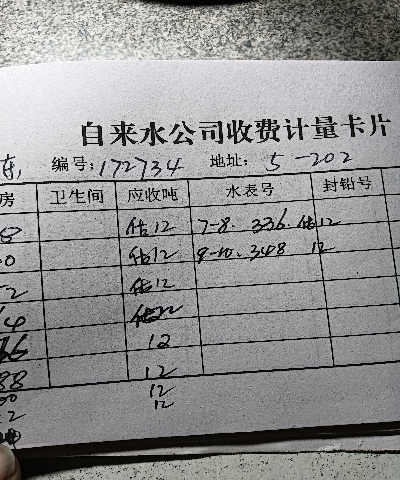 自来水公司收费计量卡片
编号:172734 地址: 5-202
房 卫生间 应收吨 水表号 封铅号
8 估12 7-8. 336. 估12
0 估12 9-10. 348 12
2 估12
4
36 12
88 12
00 12
2 12